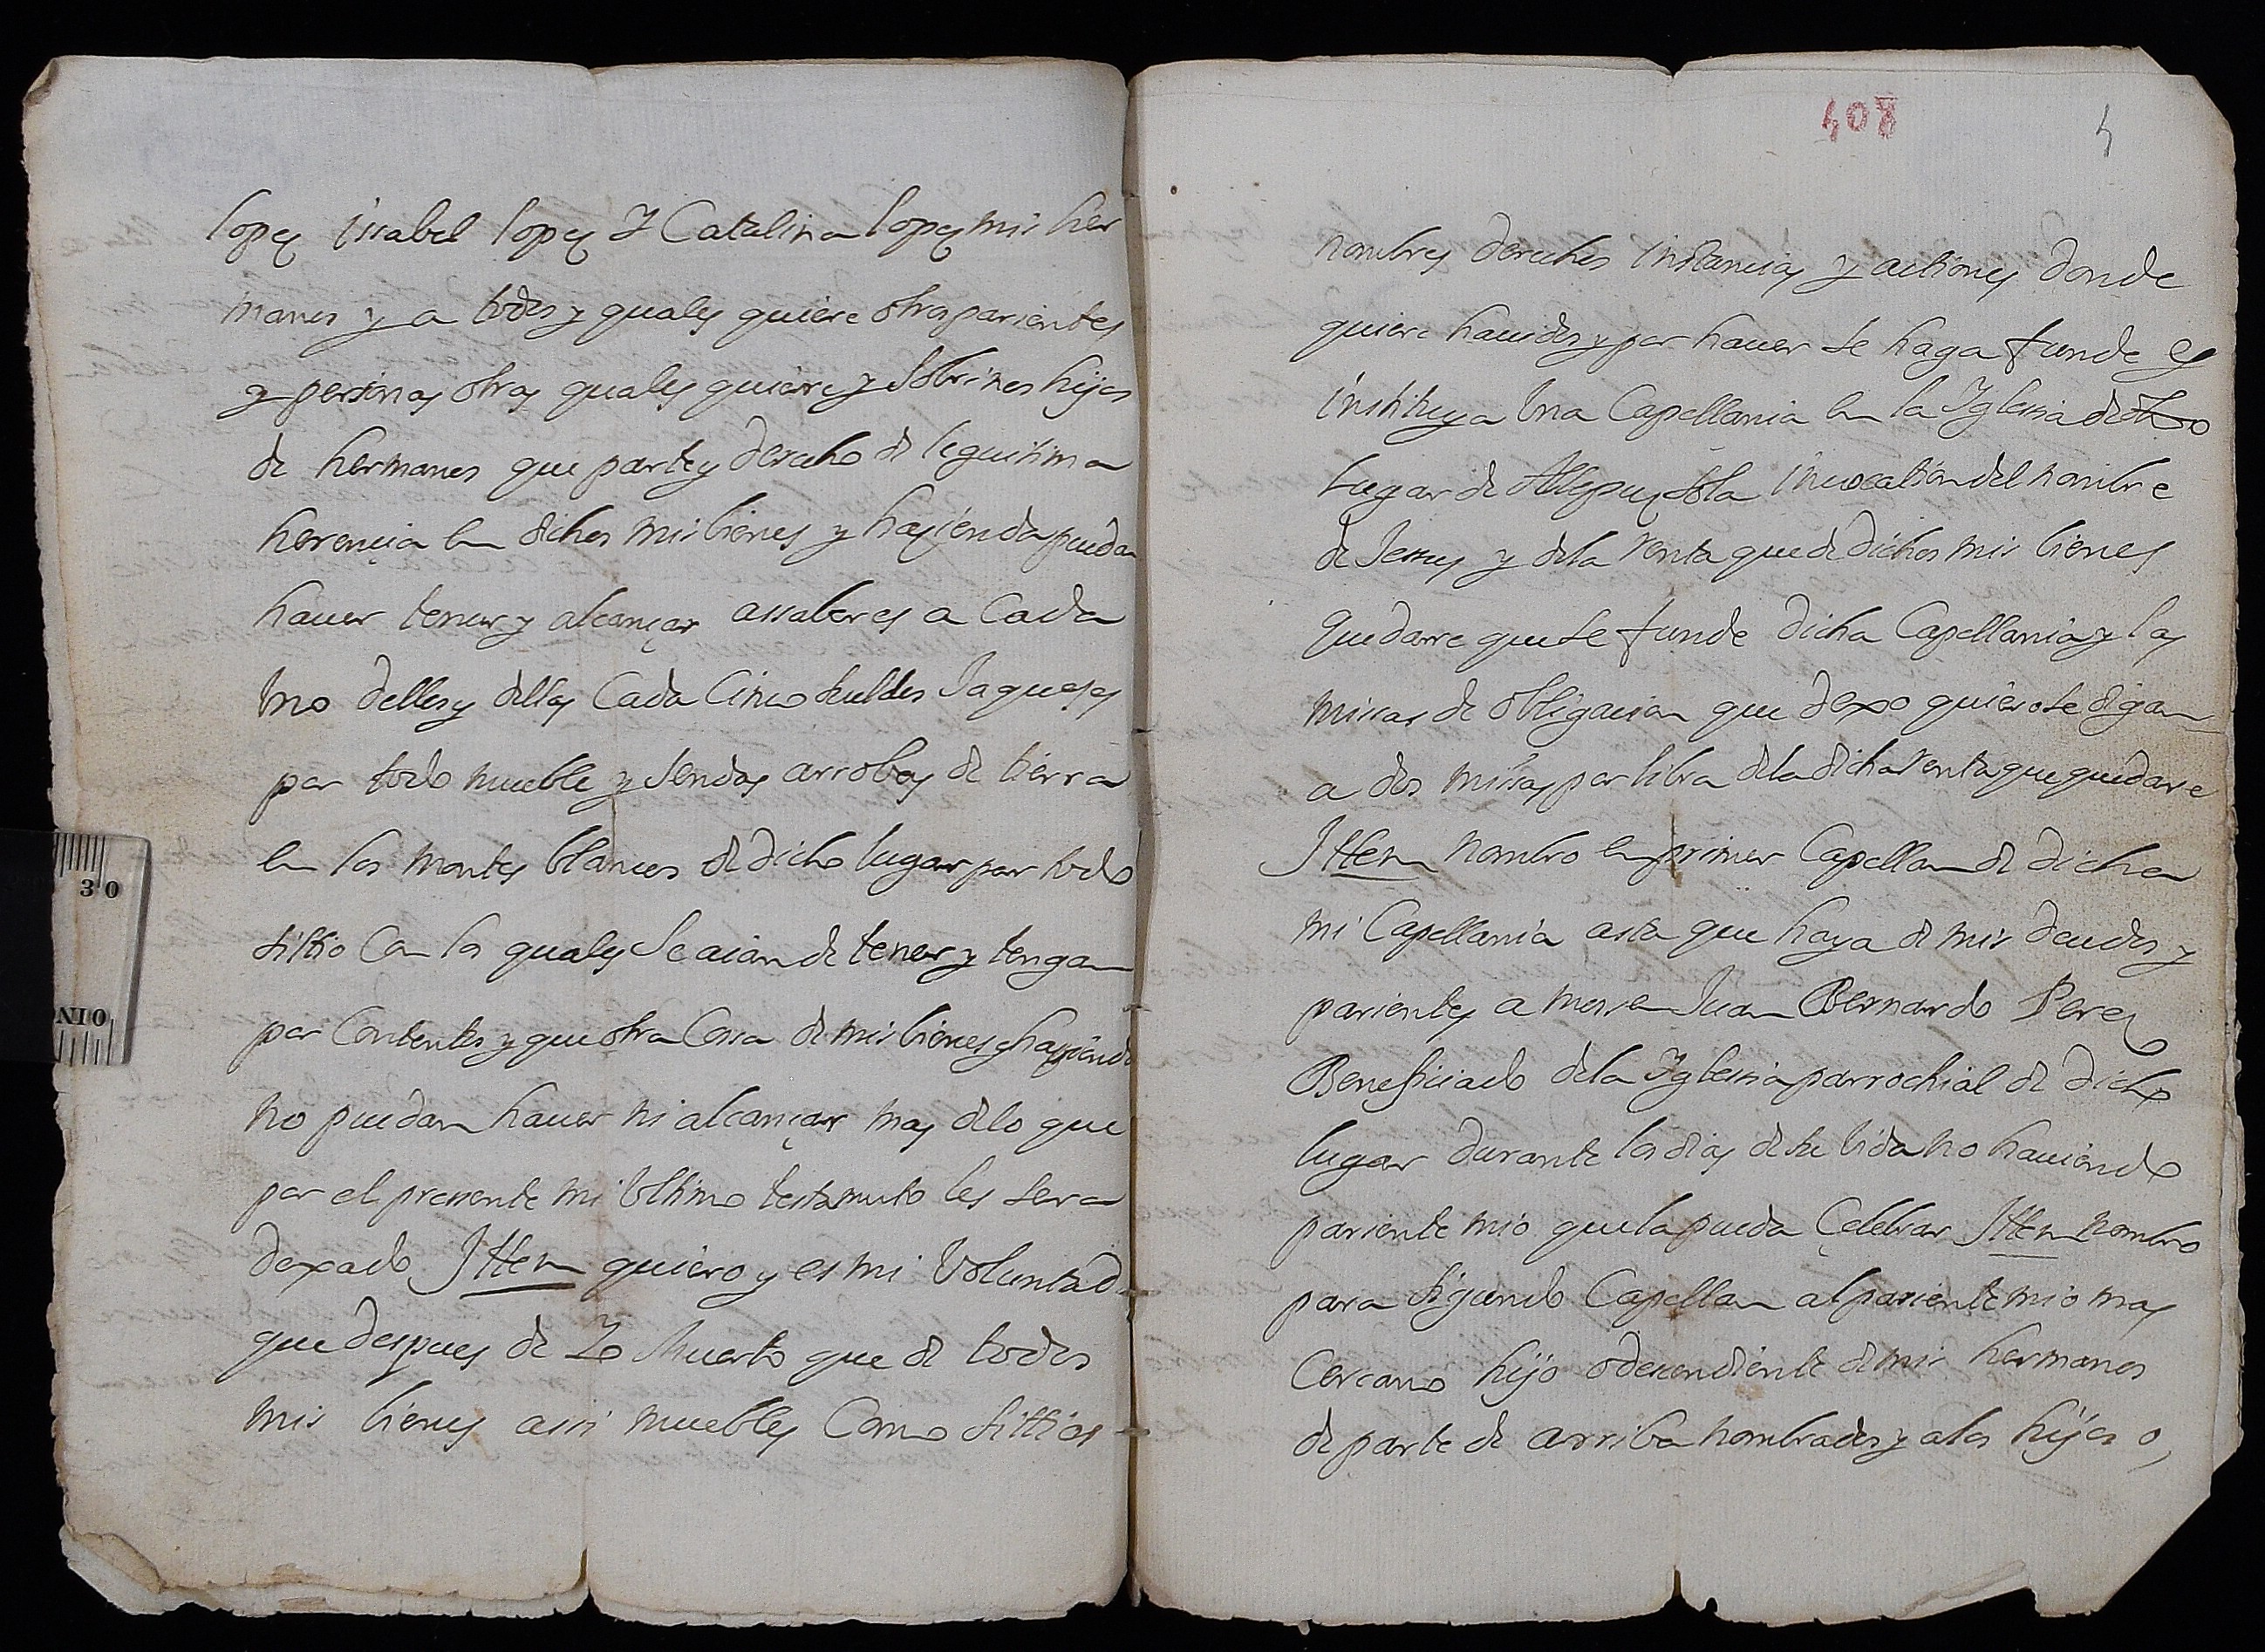 lopez issabel lopez Y Catalina lopez mis her
manos y a todos y quales quiere otros parientes
y personas otras quales quiere y sobrinos hijos
de hermanos que parte y derecho de leguitima
herençia en dichos mis bienes y hazienda puedan
hauer tener y alcançar assaber es a Cada
Uno dellos y dellas Cada Cinco sueldos Jaqueses
por todo mueble y sendas arrobas de tierra
en los montes blancos de dicho lugar por todo
sittio Con los quales Se aian de tener y tengan
por Contentos y que otra Cossa de mis bienes y hazienda
no puedan hauer ni alcançar mas de lo que
por el pressente mi Ultimo testamento les sera
dexado Ittem quiero y es mi Voluntad
que despues de Yo Muerto que de todos
mis bienes assi muebles Como sittios
408
4
nombres derechos instancias y actiones donde
quiere hauidos y por hauer se haga funde e
instituya Una Capellania en la Iglessia de dicho
lugar de Allepuz so la inuocation del nombre
de Jessus y de la renta que de dichos mis bienes
quedarre que se funde dicha Capellania y las
missas de obligacion que dexo quiero se digan
a dos missas por libra de la dicha renta que quedare
Ittem nombro en primer Capellan de dicha
mi Capellania asta que haya de mis deudos y
parientes a mossen Juan Bernardo Perez
Beneficiado de la Iglessia parrochial de dicho
lugar durante los dias de su Vida no hauiendo
pariente mio que la pueda Çelebrar Ittem nombro
para segundo Capellan al pariente mio mas
Cercano hijo o descendiente de mis hermanos
de parte de arriba nombrados y a los hijos o,
30